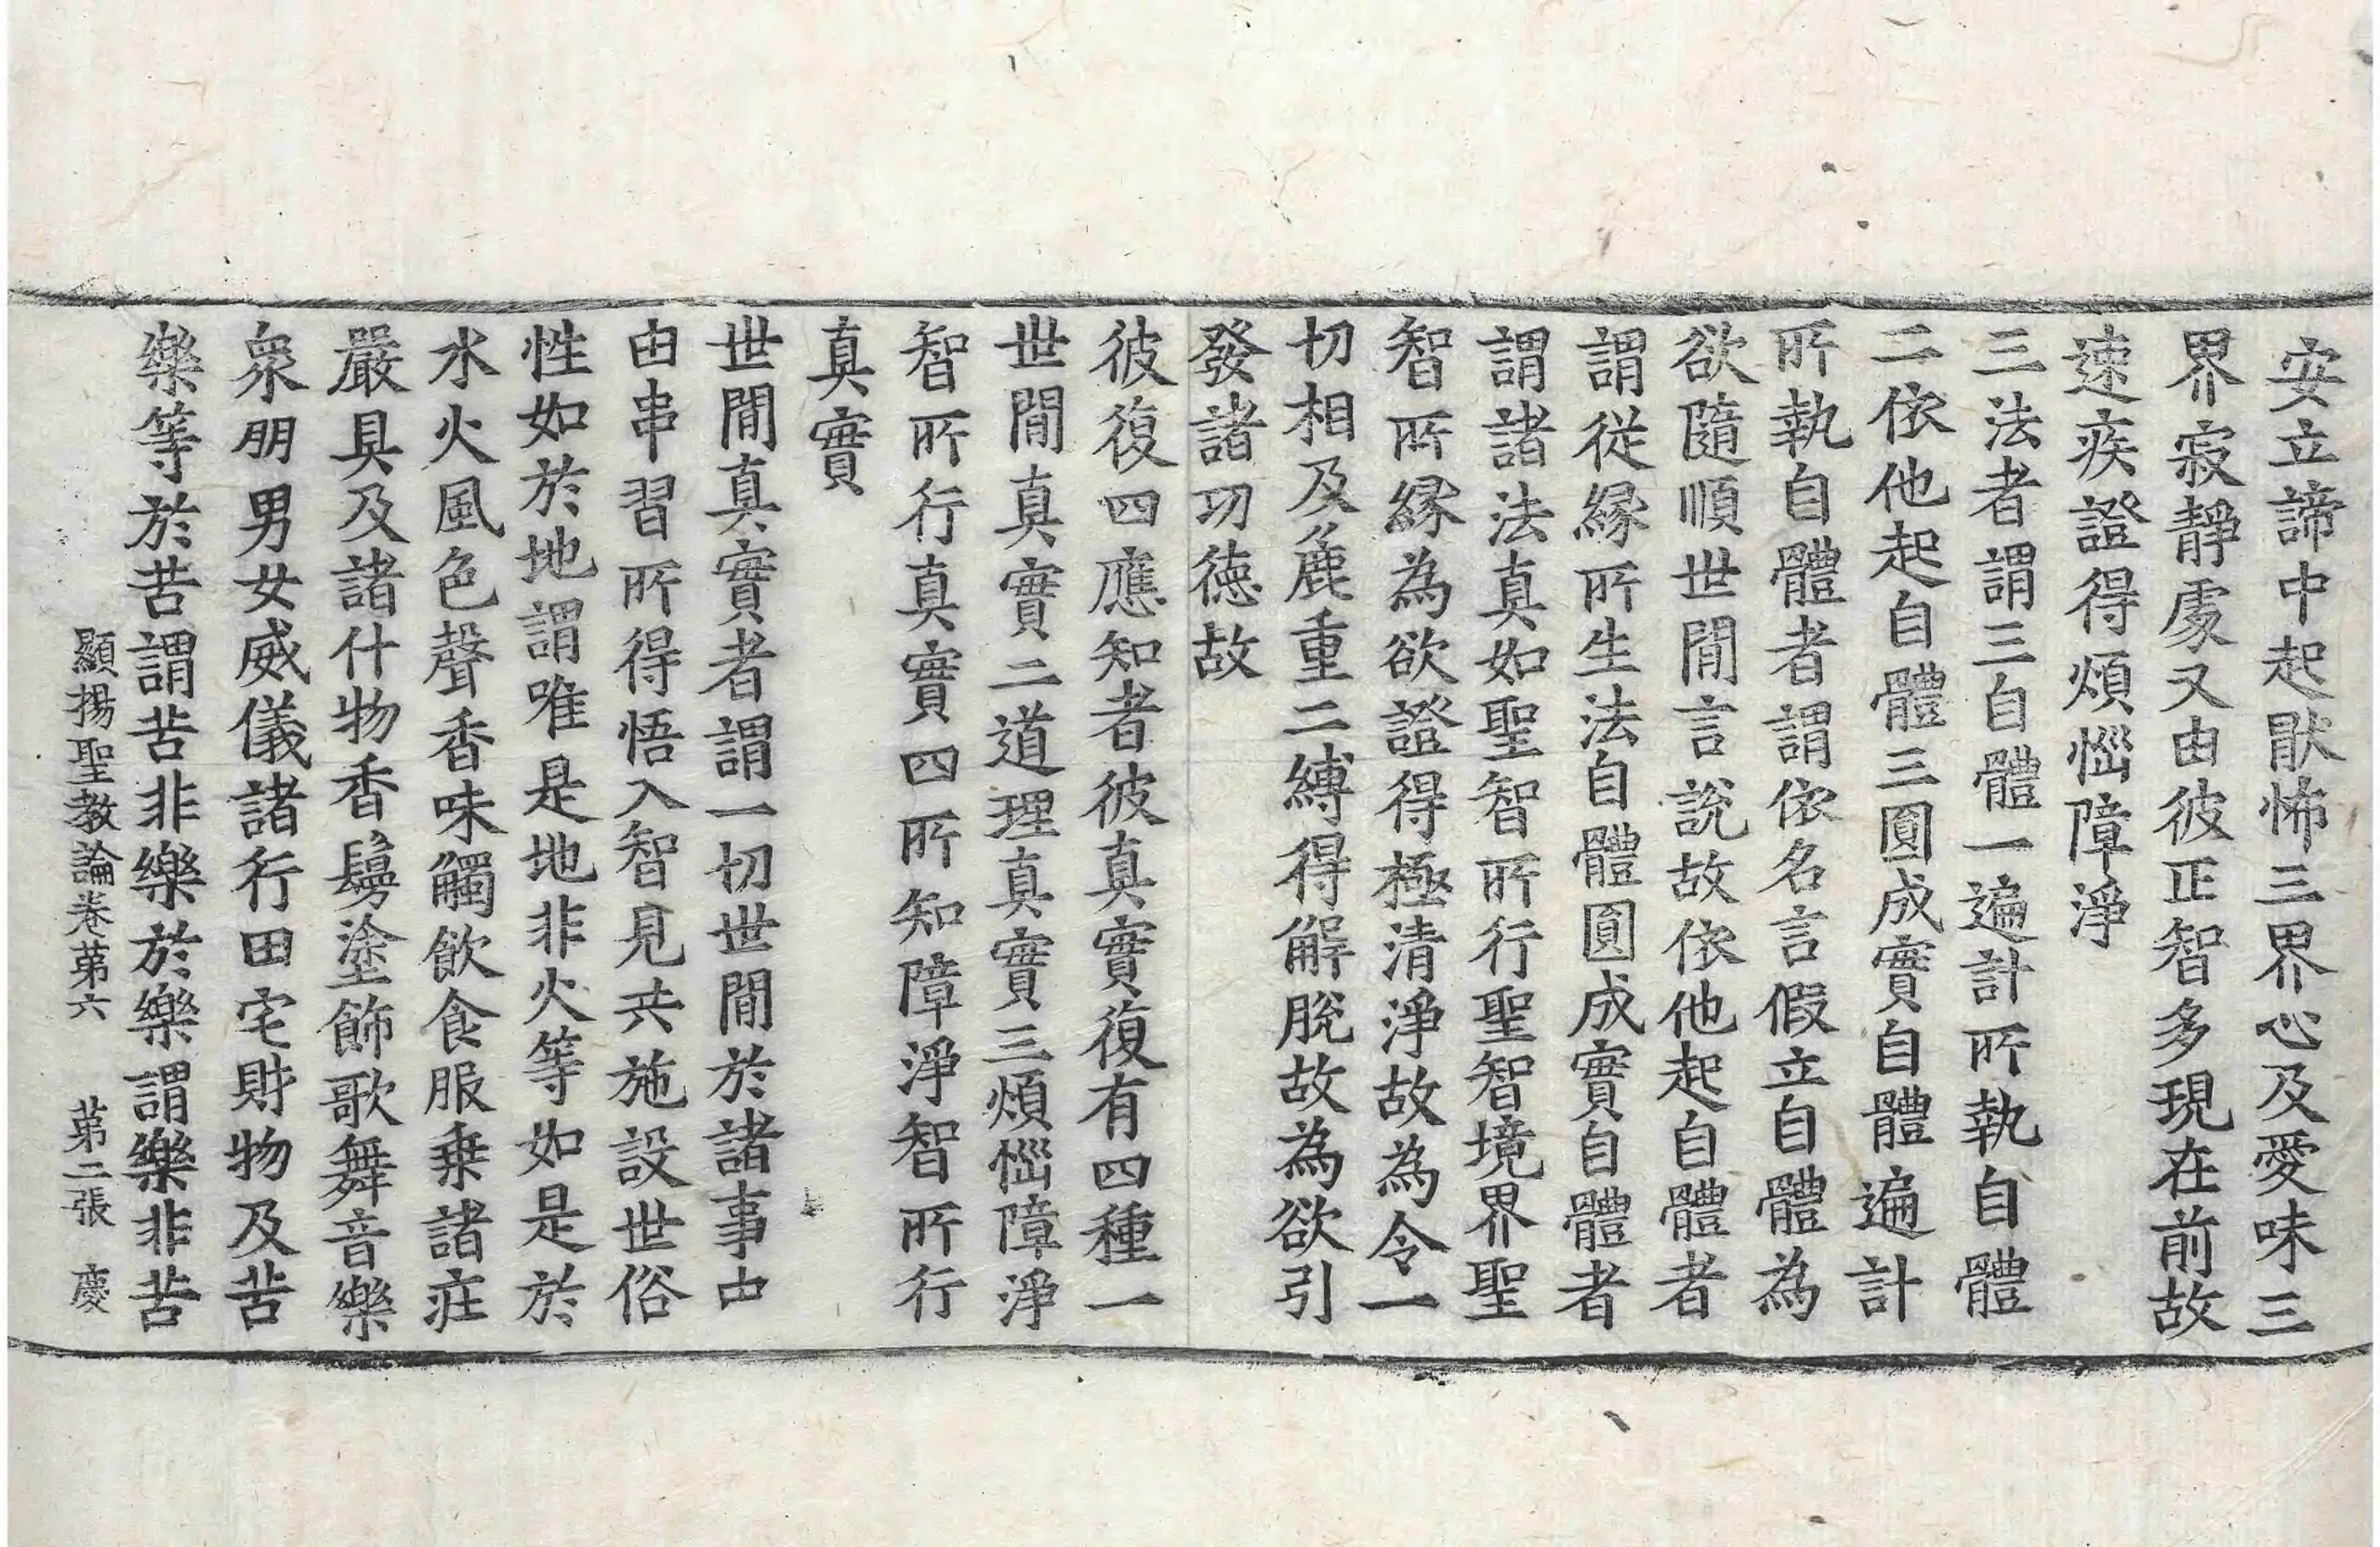 安立諦中起猒怖三界心及愛味三
界寂靜處又由彼正智多現在前故
速疾證得煩惱障淨
三法者謂三自體一遍計所執自體
二依他起自體三圓成實自體遍計
所執自體者謂依名言假立自體為
欲隨順世間言說故依他起自體者
謂從緣所生法自體圓成實自體者
謂諸法真如聖智所行聖智境界聖
智所緣為欲證得極清淨故為令一
切相及麁重二縛得解脫故為欲引
發諸功徳故
彼復四應知者彼真實復有四種一
世間真實二道理真實三煩惱障淨
智所行真實四所知障淨智所行
真實
世間真實者謂一切世間於諸事由
由串習所得悟入智見共施設世俗
性如於地謂唯是地非火等如是於
水火風色聲香味觸飲食服乗諸莊
嚴具及諸什物香鬘塗飾歌舞音樂
衆朋男女威儀諸行田宅財物及苦
樂等於苦謂苦非樂於樂謂樂非苦
顯揚聖教論卷苐六 苐二張 慶